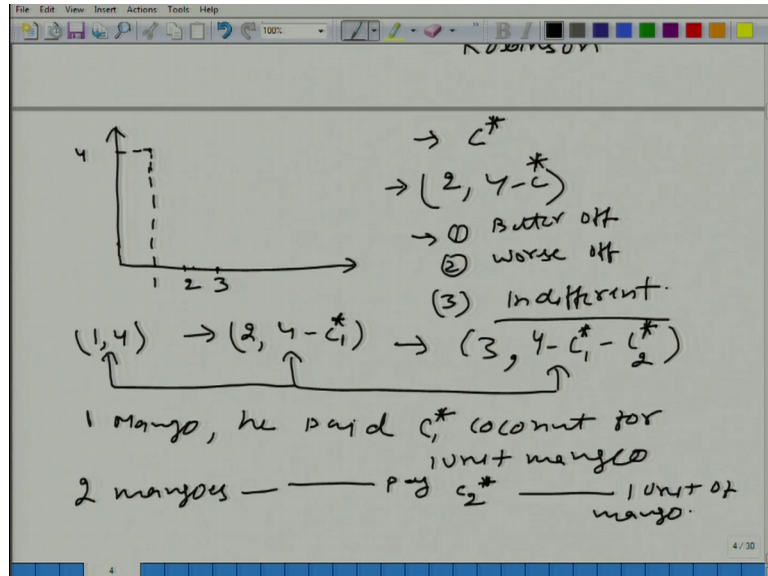 File Edit View Insert Actions Tools Help
100%
B I
Robinson
→ C*
4
→ (2, 4-C*)
→ ① Better off
② worse off
(3) Indifferent.
1 2 3
(1,4) → (2, 4-C₁*) → (3, 4-C₁*-C₂*)
1 Mango, he paid C₁* coconut for
1 unit mango
2 mangoes — — pay C₂* — 1 unit of
mango.
4 / 30
4